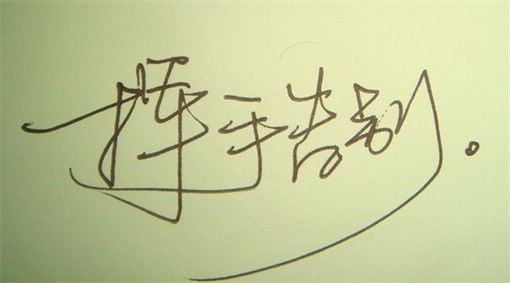 挥手告别。